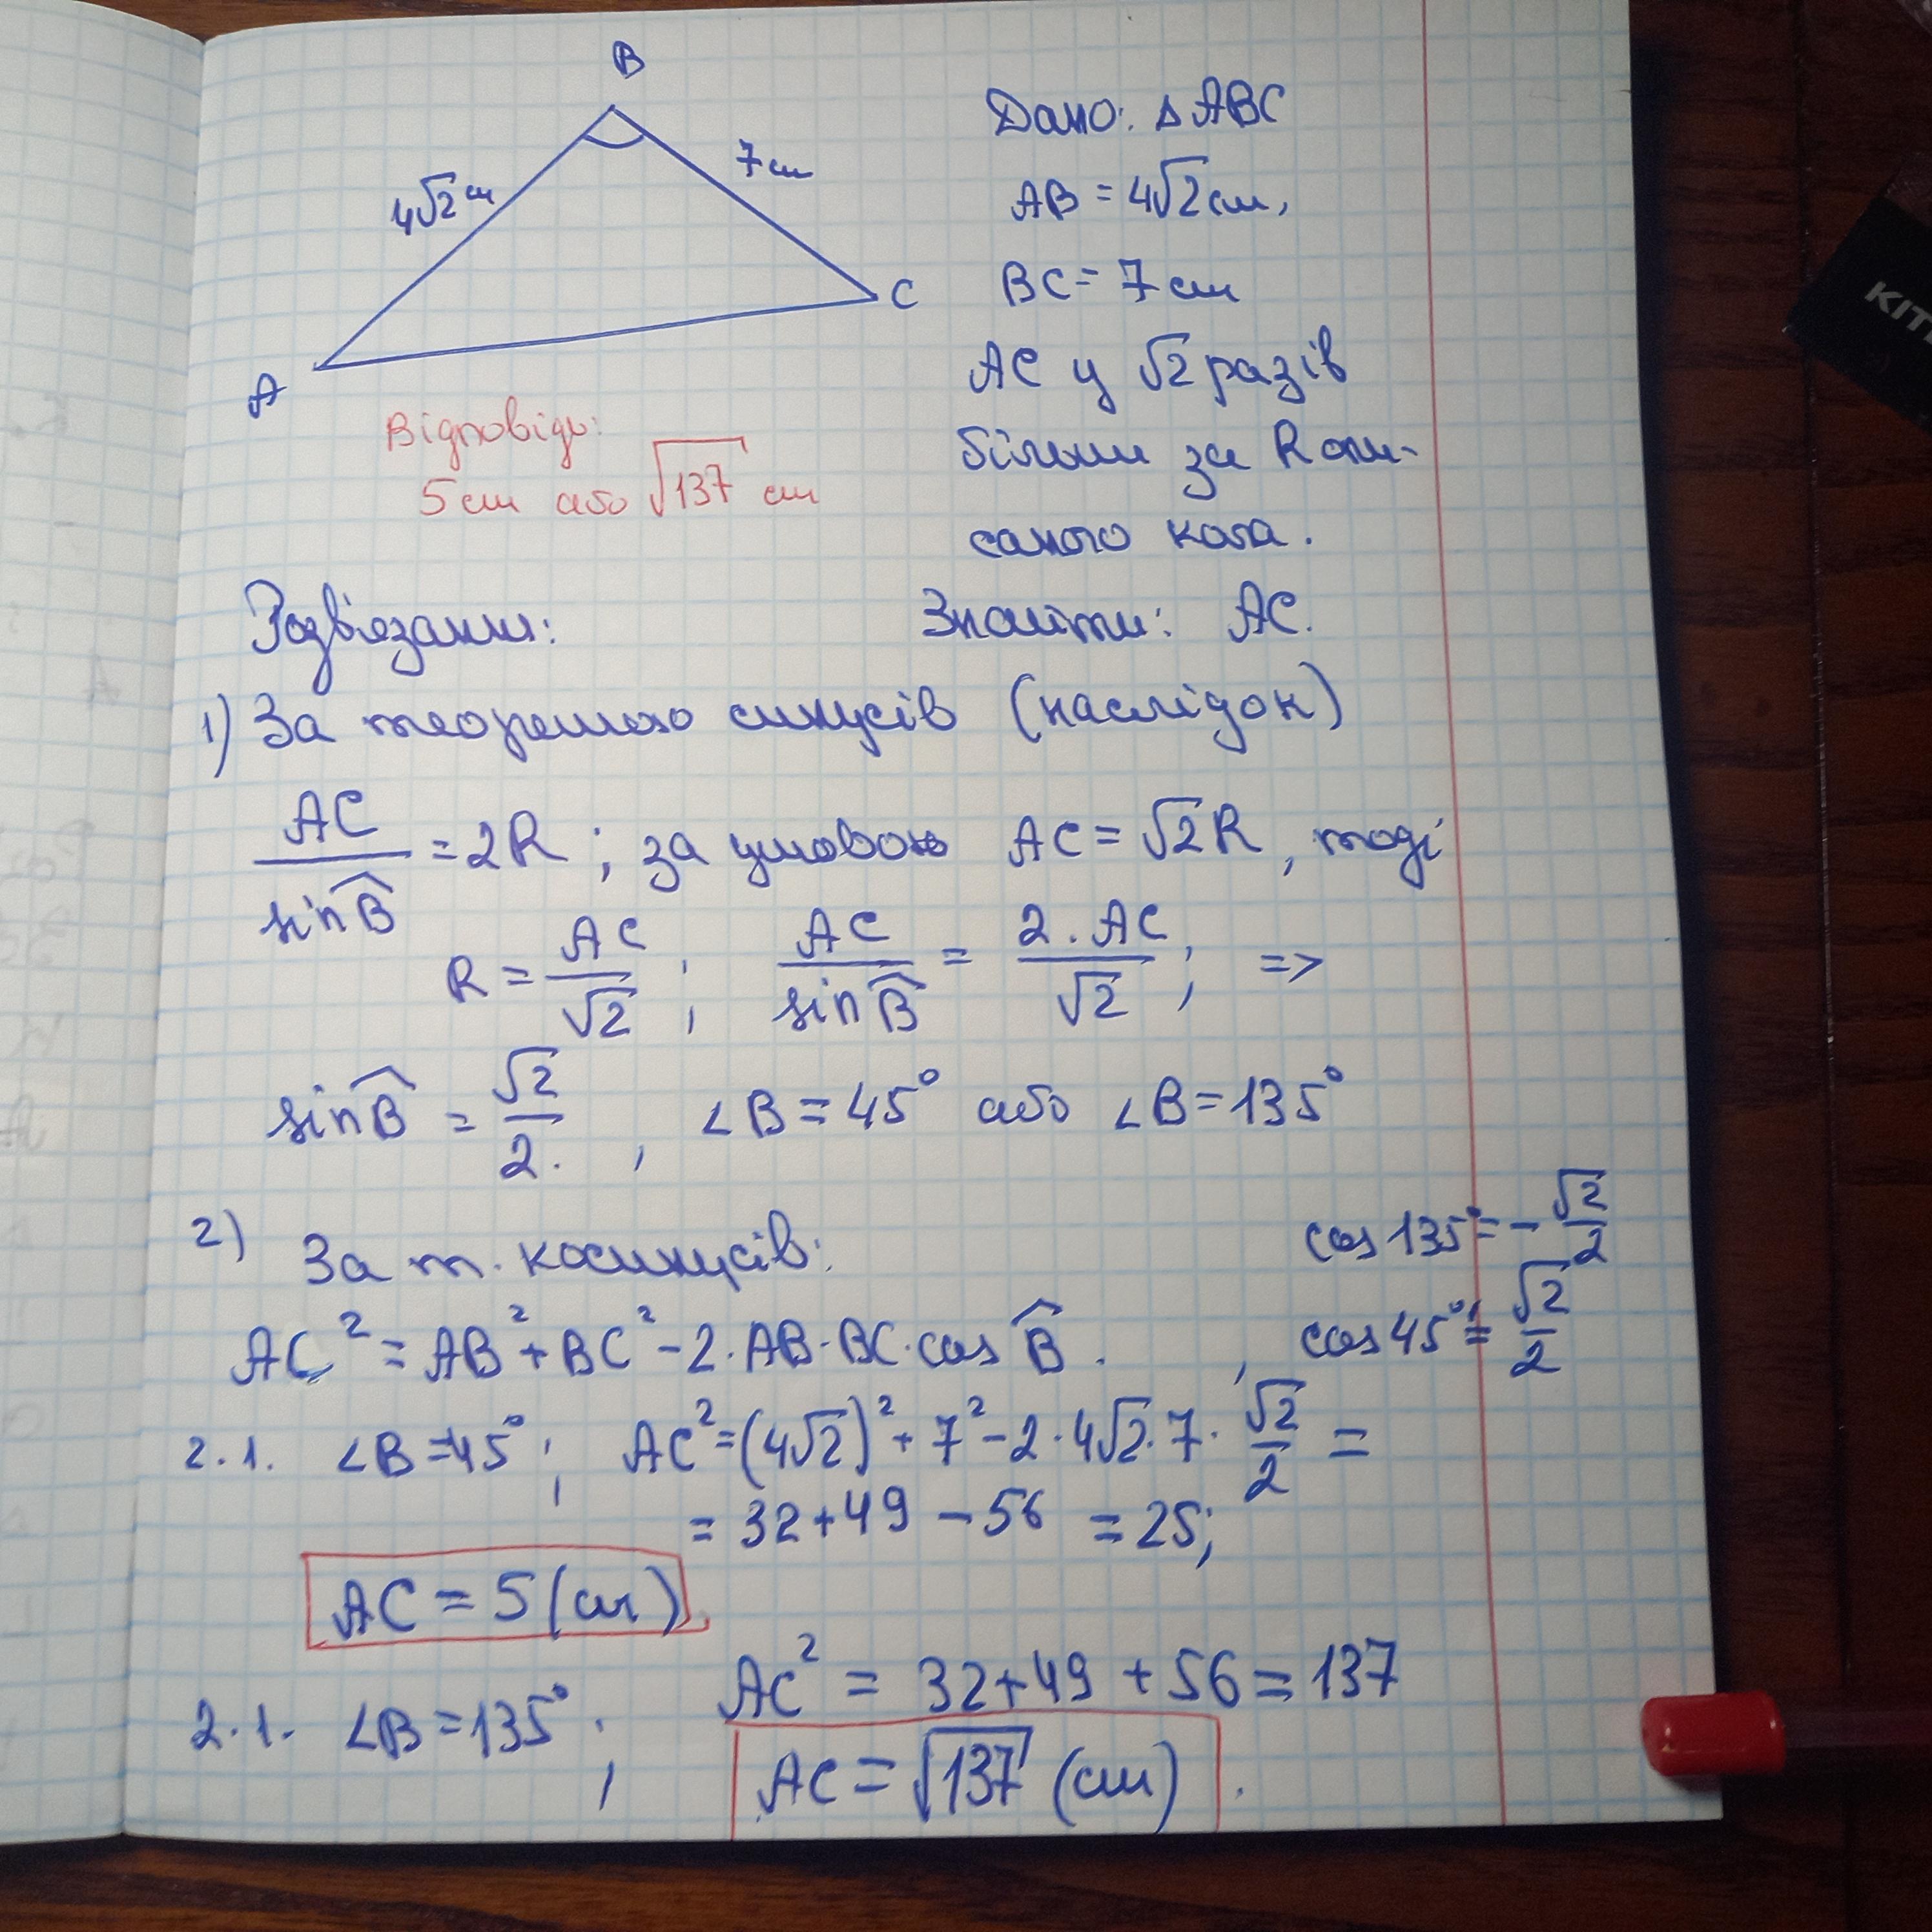 B
4√2 см
7 см
A
C
Дано: △ABC
AB = 4√2 см,
BC = 7 см
AC у √2 разів
більши за R опи-
саного кола.
Відповідь:
5 см або √137 см
Знайти: AC.
Розв'язання:
1) За теоремою синусів (наслідок)
AC/sin B̂ = 2R ; за умовою AC = √2R, тоді
R = AC/√2 ; AC/sin B̂ = 2·AC/√2 ; =>
sin B̂ = √2/2. , ∠B = 45° або ∠B = 135°
2) За т. косинусів:
cos 135° = -√2/2
AC² = AB² + BC² - 2·AB·BC·cos B̂. , cos 45° = √2/2
2.1. ∠B = 45° ; AC² = (4√2)² + 7² - 2·4√2·7·√2/2 =
= 32 + 49 - 56 = 25;
AC = 5 (см).
2.1. ∠B = 135° ; AC² = 32 + 49 + 56 = 137
AC = √137 (см).